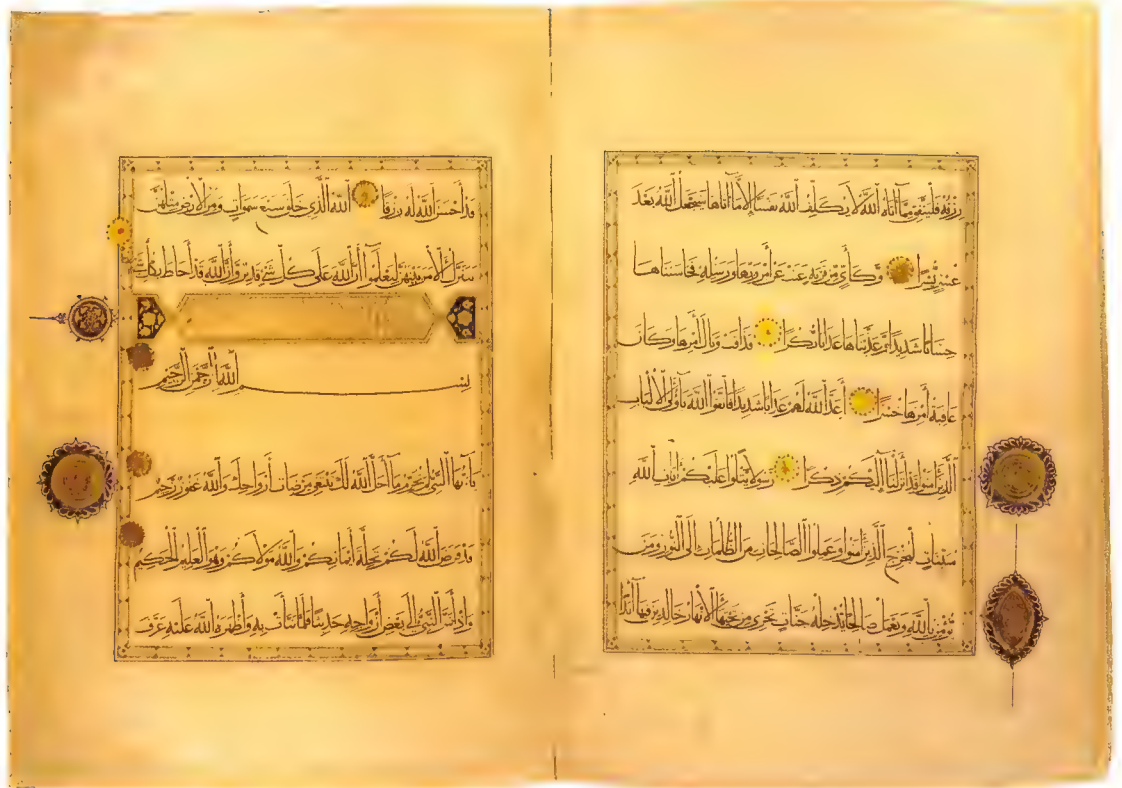 رزقه فلينفق مما آتاه الله لا يكلف الله نفسا إلا ما آتاها سيجعل الله بعد
عسر يسرا وكأين من قرية عتت عن أمر ربها ورسله فحاسبناها
حسابا شديدا وعذبناها عذابا نكرا فذاقت وبال أمرها وكان
عاقبة أمرها خسرا أعد الله لهم عذابا شديدا فاتقوا الله يا أولي الألباب
الذين آمنوا قد أنزل الله إليكم ذكرا رسولا يتلوا عليكم آيات الله
مبينات ليخرج الذين آمنوا وعملوا الصالحات من الظلمات إلى النور ومن
يؤمن بالله ويعمل صالحا يدخله جنات تجري من تحتها الأنهار خالدين فيها أبدا
قد أحسن الله له رزقا الله الذي خلق سبع سموات ومن الأرض مثلهن
يتنزل الأمر بينهن لتعلموا أن الله على كل شيء قدير وأن الله قد أحاط بكل
بسم الله الرحمن الرحيم
يا أيها النبي لم تحرم ما أحل الله لك تبتغي مرضات أزواجك والله غفور رحيم
قد فرض الله لكم تحلة أيمانكم والله مولاكم وهو العليم الحكيم
وإذ أسر النبي إلى بعض أزواجه حديثا فلما نبأت به وأظهره الله عليه عرف